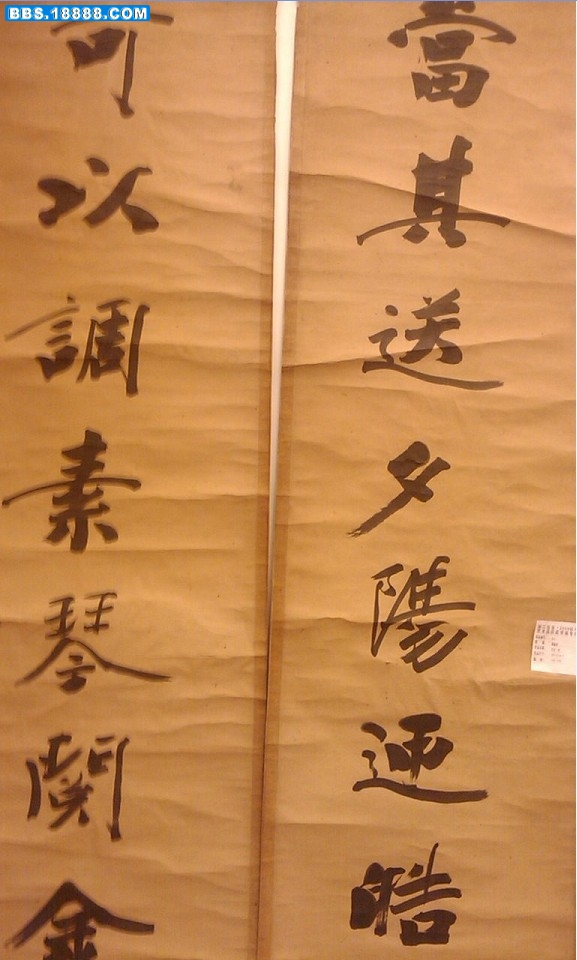 BBS.18888.COM
當其送夕陽迎皓
可以調素琴閱金